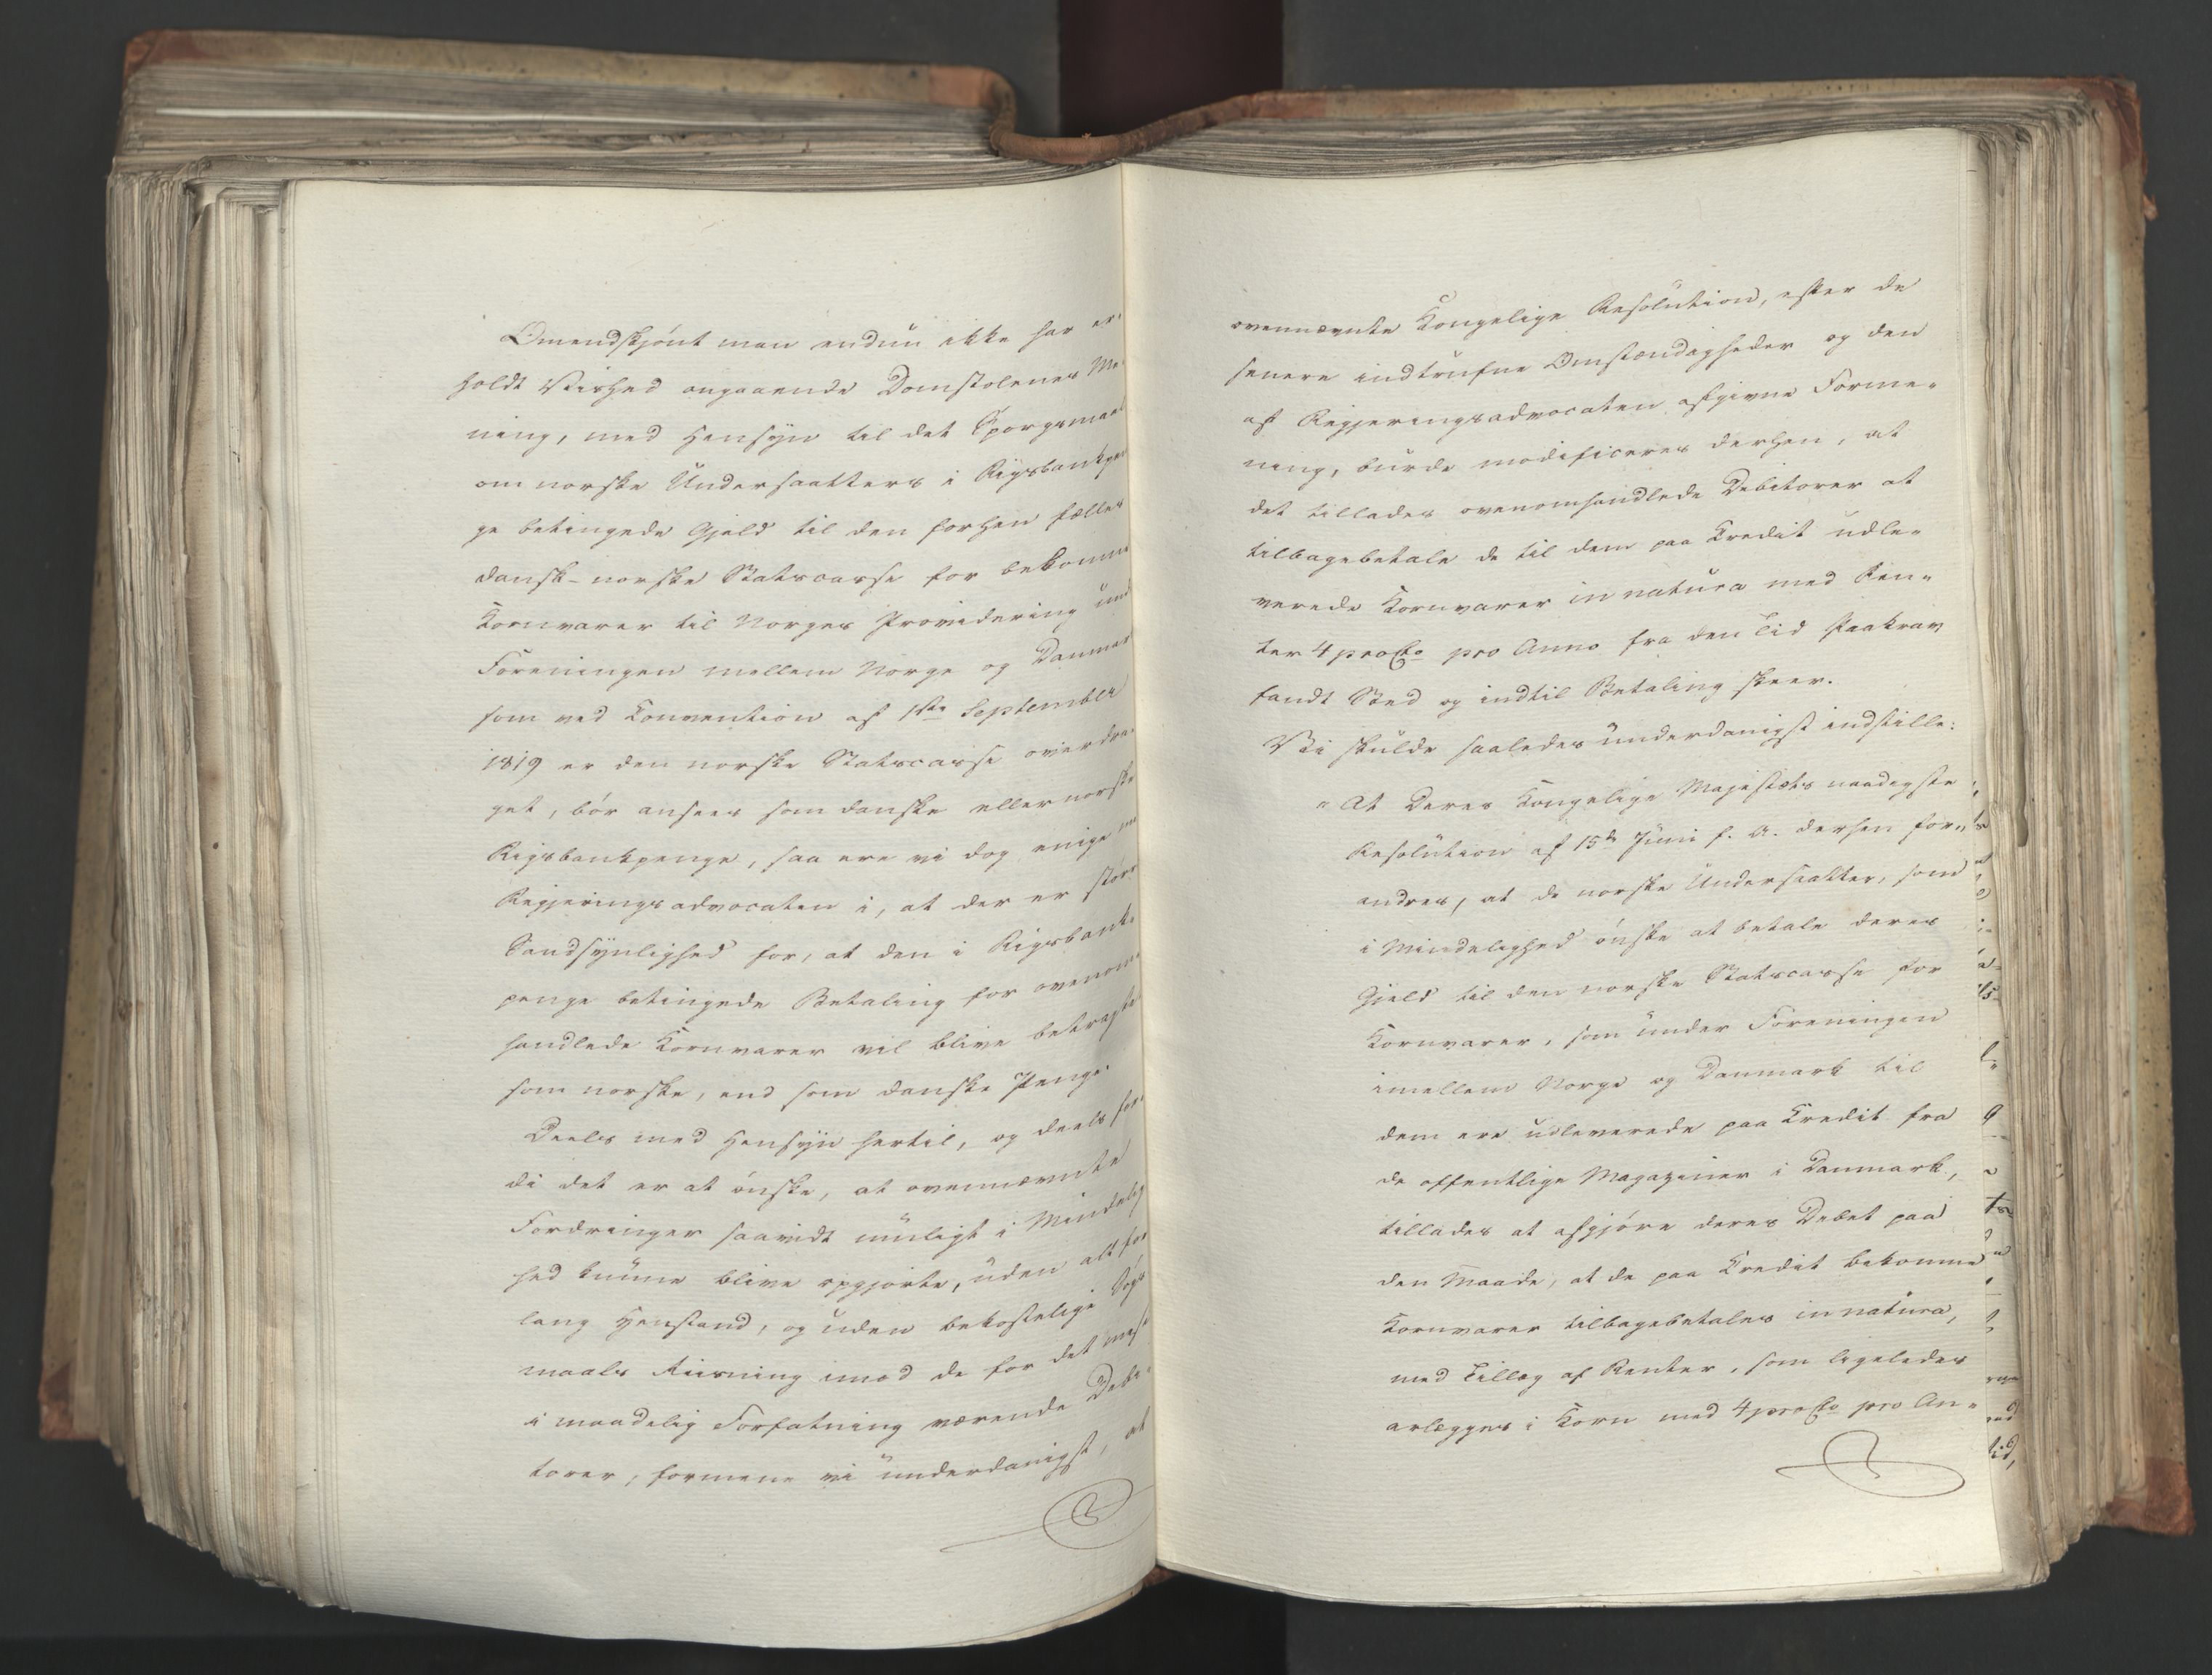 Omendskjönt man endnu ikke har er-
holdt Vished angaaende Domstolenes Me-
ning, med Hensyn til det Spørgsmaal
om norske Undersaatters i Rigsbankpen-
ge betingede Gjeld til den forhen fælles
dansk-norske Statscasse for bekomne
Kornvarer til Norges Providering und
Foreningen mellem Norge og Danmar
som ved Konvention af 1ste September
1819 er den norske Statscasse overdra-
get, bör ansees som danske eller norske
Rigsbankpenge, saa ere vi dog enige m
Regjeringsadvocaten i, at der er störr
Sandsynlighed for, at den i Rigsbank-
penge betingede Betaling for ovenom-
handlede Kornvarer vil blive betragte
som norske, end som danske Penge.
Deels med Hensyn hertil, og deels for-
di det er at önske, at ovennævnte
Fordringer saavidt muligt i Mindelig
hed kunne blive opgjorte, uden alt for
lang Henstand, og uden bekostelige Sögs
maals Reisning imod de for det mest
i maadelig Forfatning værende Debi-
torer, formene vi underdanigst, at
ovennævnte Kongelige Resolution, efter de
senere indtrufne Omstændigheder og den
af Regjeringsadvocaten afgivne Forme-
ning, burde modificeres derhen, at
det tillades ovenomhandlede Debitorer at
tilbagebetale de til dem paa Kredit udle-
verede Kornvarer in natura med Ren-
ter 4 proCto pro Anno fra den Tid Paakrav
fandt Sted og indtil Betaling skeer.
Vi skulde saaledes underdanigst indstille:
"At Deres Kongelige Majestæts naadigste
Resolution af 15de Juni f. A. derhen for-
andres, at de norske Undersaatter, som
i Mindelighed önske at betale deres
Gjeld til den norske Statscasse for
Kornvarer, som under Foreningen
imellem Norge og Danmark til
dem ere udleverede paa Kredit fra
de offentlige Magaziner i Danmark,
tillades at afgjöre deres Debet paa
den Maade, at de paa Kredit bekomne
Kornvarer tilbagebetales in natura,
med Tillæg af Renter, som ligeledes
erlægges i Korn med 4 proCto pro An-